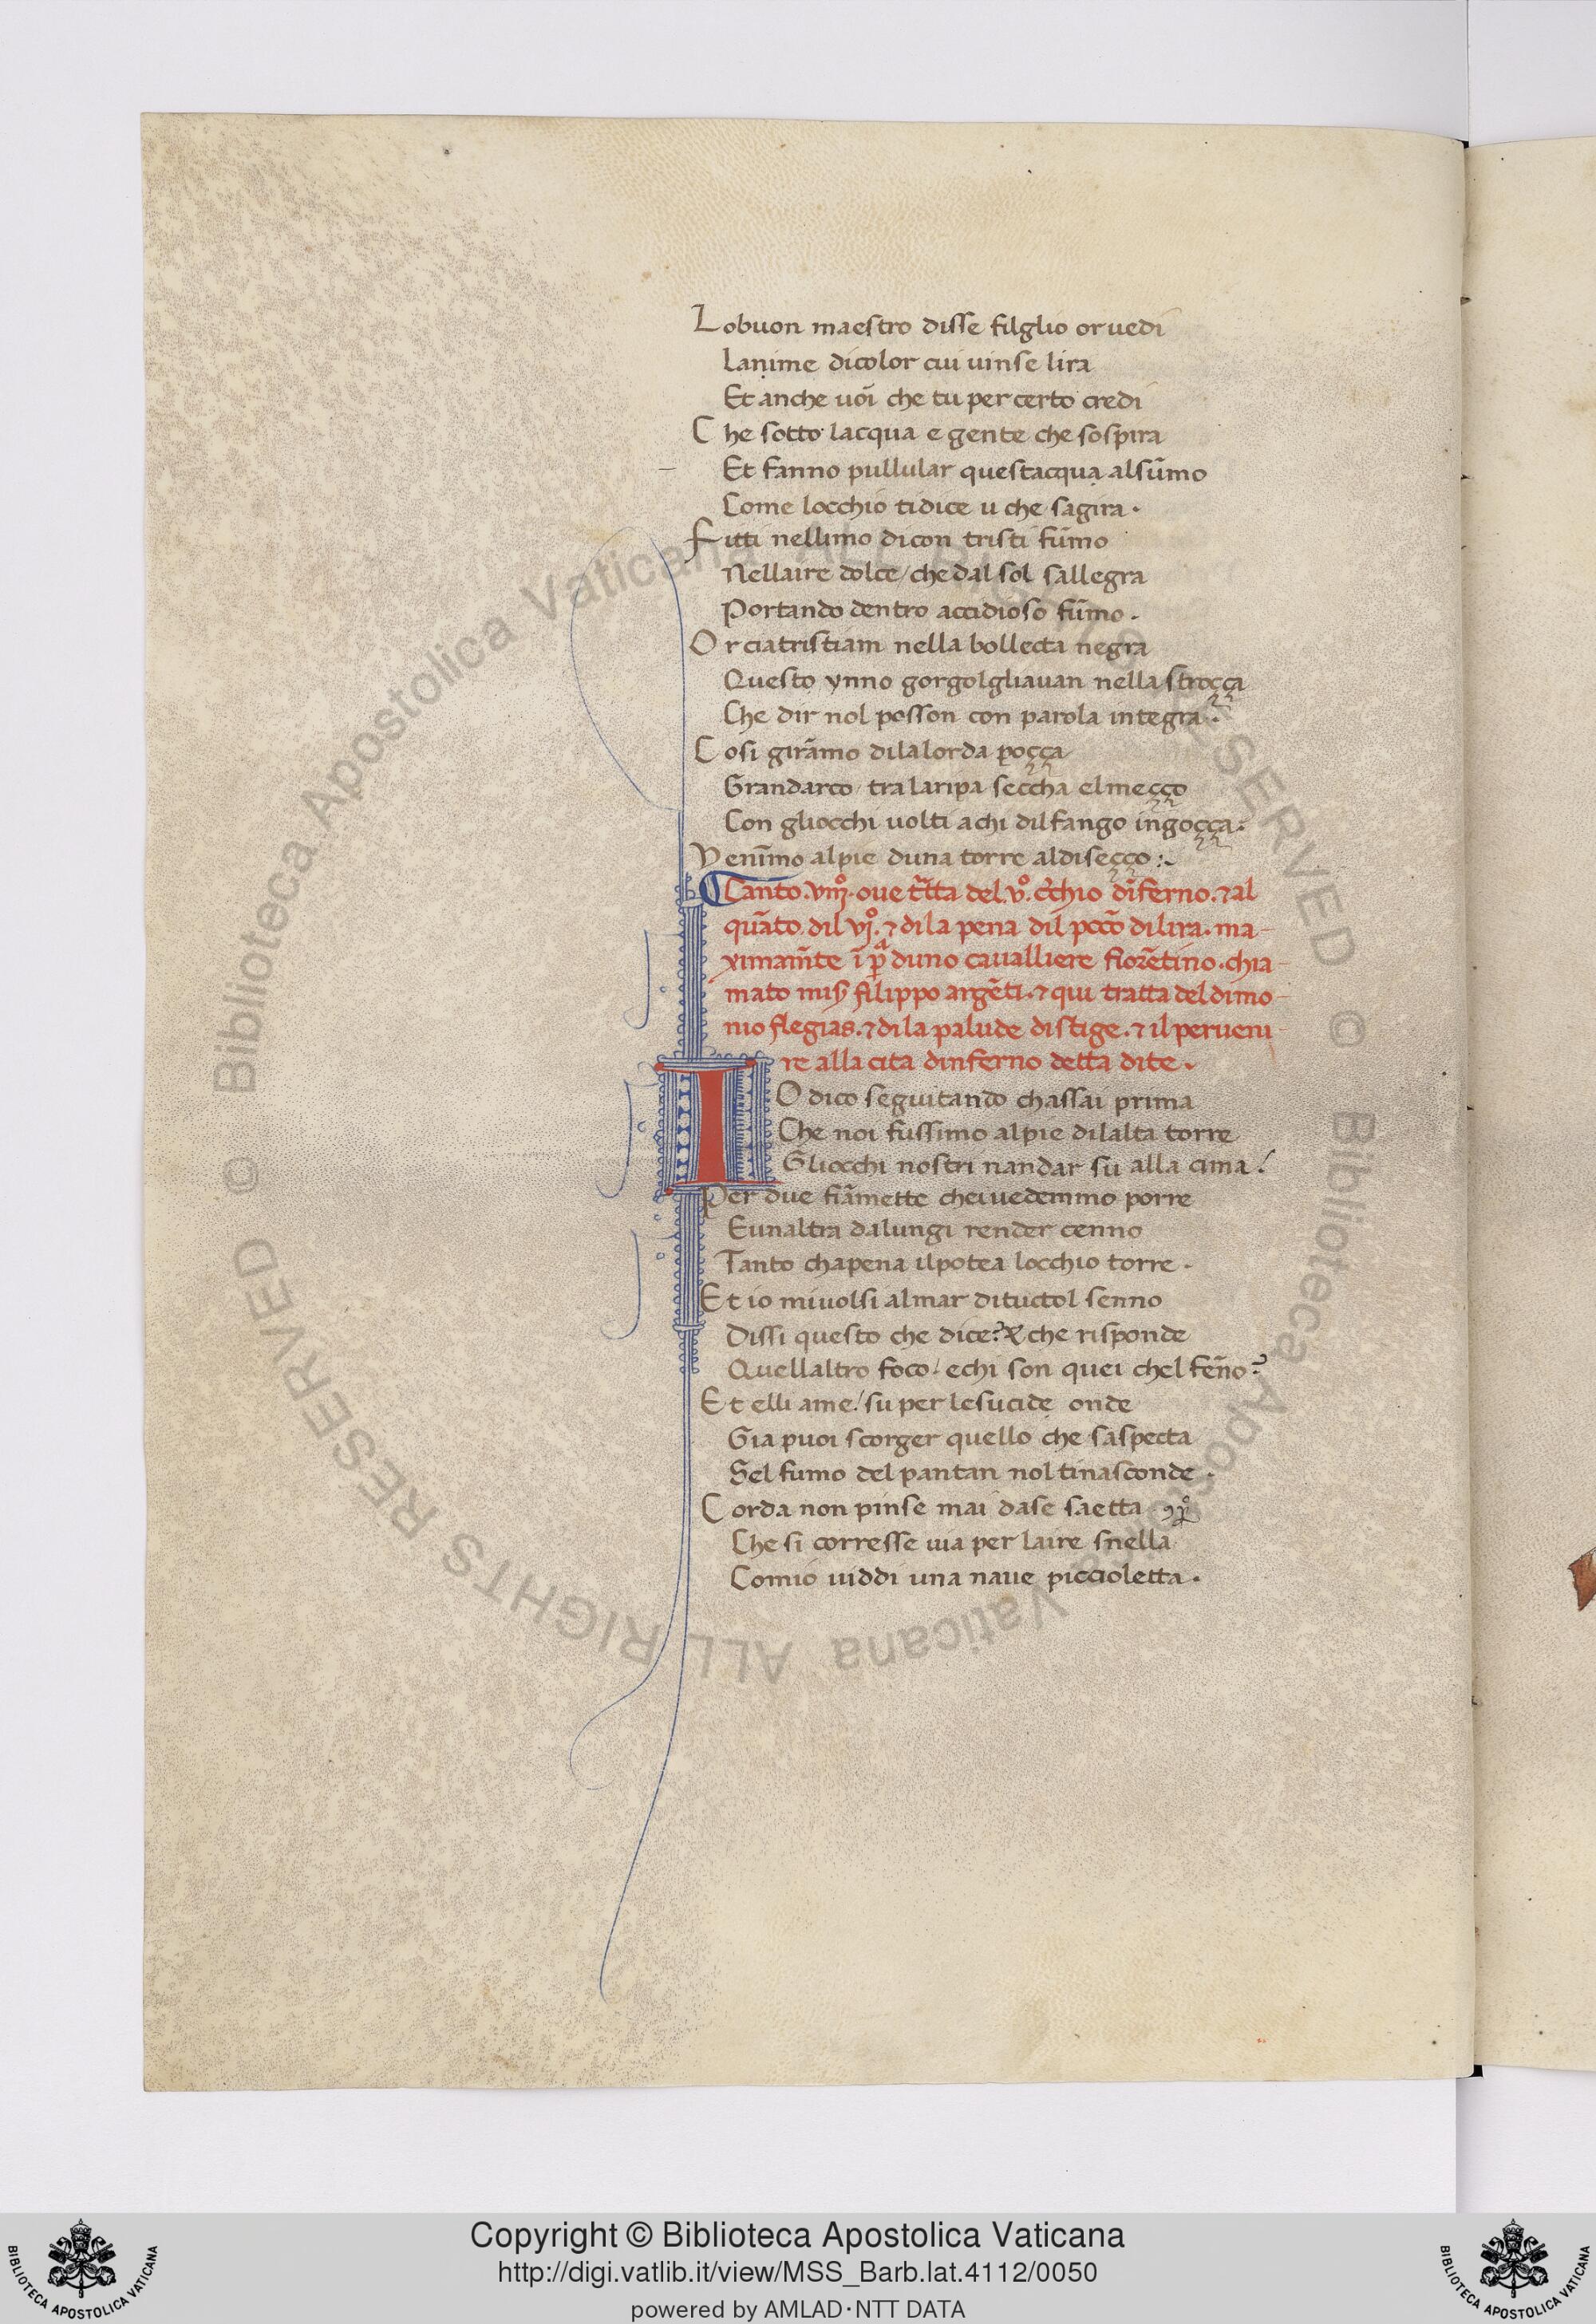 Lobuon maestro disse filglio or uedi
Lanime dicolor cui uinse lira
Et anche uoi che tu per certo credi
Che sotto lacqua e gente che sospira
Et fanno pullular questacqua alsūmo
Come locchio tidice u che sagira·
Fitti nellimo dicon tristi fūmo
Nellaire dolce/ che dal sol sallegra
Portando dentro accidioso fūmo·
Or ciatristiam nella bollecta negra
Questo ynno gorgolgliauan nella stroçça
Che dir nol posson con parola integra·
Cosi girāmo dilalorda poçça
Grandarco/ tra laripa seccha elmeçço
Con gliocchi uolti achi dilfango ingoçça:
Venīmo alpie duna torre aldiseçço:~
Canto·viijº· oue t̄tta del vº· c̄chio dīferno·⁊ al
quāto dil vjº·⁊ di la pena dil pccō dilira· ma-
ximam̄te ī p̄ duno cavalliere fiorētino·chia-
mato mis̄ filippo argēti·⁊ qui tratta del dimo-
nio flegias·⁊ di la palude distige·⁊ il perueni
re alla cita dinferno detta dite·
IO dico seguitando chassai prima
Che noi fussimo alpie dilalta torre
Gliocchi nostri nandar su alla cima/
Per due fiāmette cheiuedemmo porre
Eunaltra dalungi render cenno
Tanto chapena ilpotea locchio torre·
Et io mivolsi almar dituctol senno
Dissi questo che dice? & che risponde
Quellaltro foco/ echi son quei chel fēno?
Et elli ame/ su per lesucide onde
Gia puoi scorger quello che saspecta
Sel fumo del pantan nol tinasconde·
Corda non pinse mai dase saetta
Che si corresse uia per laire snella
Comio uiddi una naue piccioletta·
Copyright © Biblioteca Apostolica Vaticana
http://digi.vatlib.it/view/MSS_Barb.lat.4112/0050
powered by AMLAD·NTT DATA
BIBLIOTECA APOSTOLICA VATICANA
BIBLIOTECA APOSTOLICA VATICANA
© Biblioteca Apostolica Vaticana ALL RIGHTS RESERVED © Biblioteca Apostolica Vaticana ALL RIGHTS RESERVED